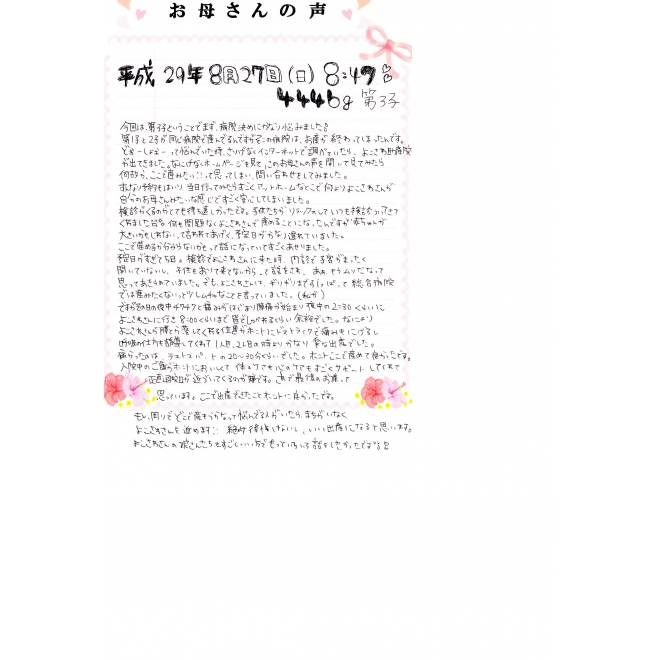 お母さんの声
平成 29年 8月27日(日) 8:47
4446g 第3子
今回は、第3子ということでまず、病院決めにかなり悩みました
第1子と2子が同じ病院で産んでるんですがその病院は、お産が終わってしまったんです。
どおーしよおーって悩んでいた時、さりげなくインターネットで調べていたら、よこさわ助産院
が出てきました。なにげなくホームページを見て、このお母さんの声を開いて見てみたら
何故か、ここで産みたい!!って思ってしまい、問い合わせをしてみました。
すんなり予約もはいり 当日行ってみたらすごくアットホームなとこで何よりよこさわさんが
自分のお母さんみたいな感じですごく安心してしまいました。
検診がくるのがとても待ち遠しかったです。子供たちがリラックスしていつも検診
くれました 何も問題なくよこさわさんで産めることになったんですが赤ちゃんが
大きいかもしれないって言われてあげく、予定日がかなり遅れていました。
ここで産めるか分からないかもって話になっていてすごくあせりました。
予定日がすぎて5日。検診でよこさわさんに来た時、内診で子宮がまったく
開いていないし、子供もおりて来てないからって言われ、あぁもうムリだなって
思ってあきらめていました。でも、よこさわさんは、ギリギリまで 総合病院
では産みたくないっとワガママなことを言っていました。(私が)
ですがその日の夜中チクチクと痛みがはじまり陣痛が始まり 夜中の2:30くらいに
よこさわさんに行き 8:00くらいまで皆でしゃべれるくらい余裕でした。なにより
よこさわさんが腰とか押してくれる位置がホントにストライクで痛みもにげるし
呼吸の仕方も誘導してくれて1人目、2人目の時よりかなり楽な出産でした。
痛かったのは、ラストスパートの20〜30分くらいでした。ホントここで産めて良かったです。
入院中のご飯もホントにおいしくて 体のケアも心のケアもすごくサポートしてくれて
正直退院日が近づいてくるのが嫌です。これで最後のお産って
思っています。ここで出産できたことホントに良かったです。
もし、周りでどこで産もうかなって悩んでる人がいたら、まちがいなく
よこさわさんを進めます!! 絶対後悔しないし、いい出産になると思います。
よこさわさんの娘さんたちもすごくいい方でもっといろいろ話をしたかったです